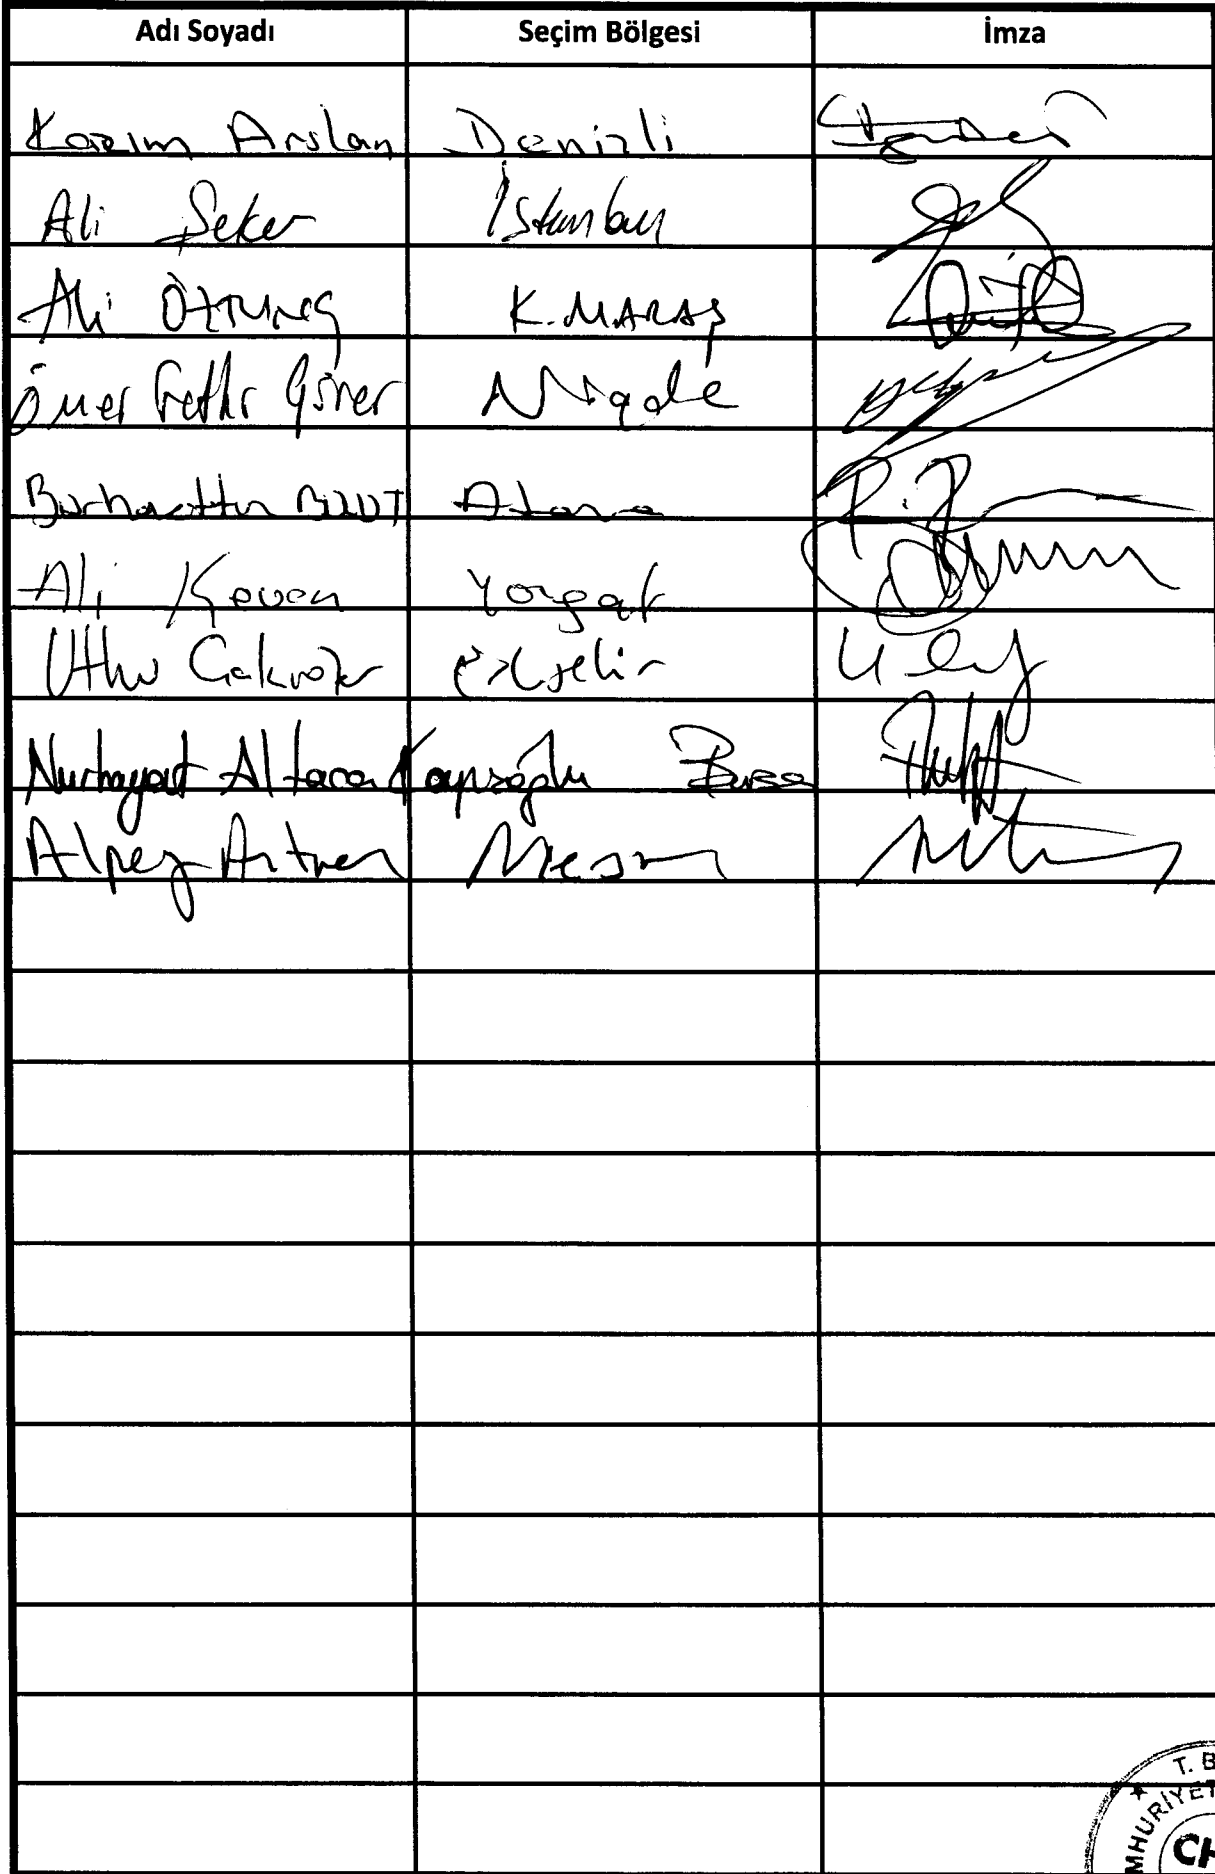 Adı Soyadı Seçim Bölgesi İmza
Kazım Arslan Denizli
Ali Şeker İstanbul
Ali ÖZTUNÇ K.MARAŞ
Ömer Fethi Gürer Niğde
Burhanettin BULUT Adana
Ali Keven Yozgat
Utku Çakırözer Eskişehir
Nurhayat Altaca Kayışoğlu Bursa
Alpay Antmen Mersin
T. B
MHURİYET
CH